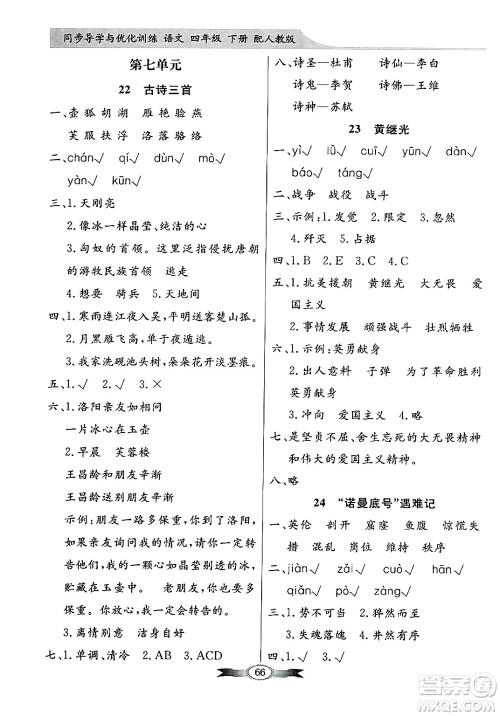 同步导学与优化训练 语文 四年级 下册 配人教版
第七单元
22 古诗三首
一、壶 狐 胡 湖 雁 艳 验 燕
芙 服 扶 浮 洛 落 骆 络
二、chán√ qí√ dùn√ mò√
yàn√ kūn√
三、1.天刚亮
2.像冰一样晶莹、纯洁的心
3.匈奴的首领。这里泛指侵扰唐朝
的游牧民族首领 逃走
4.想要 骑兵 5.天地间
四、1.寒雨连江夜入吴,平明送客楚山孤。
2.月黑雁飞高,单于夜遁逃。
3.我家洗砚池头树,朵朵花开淡墨痕。
五、1.√ 2.√ 3.×
六、1.洛阳亲友如相问
一片冰心在玉壶
2.早晨 芙蓉楼
王昌龄和朋友辛渐
王昌龄送别朋友辛渐
示例:朋友一路多保重,你到了洛阳,
如果亲友们问起我的情况,就请转告
他们,我的一颗心如晶莹剔透的冰
贮藏在玉壶中。 老朋友,多多保
重,你放心,我会按你说的去做的。
3.离情别意 洁身自好
七、1.单调、清冷 2.AB 3.ACD
八、诗圣—杜甫 诗仙—李白
诗鬼—李贺 诗佛—王维
诗神—苏轼
23 黄继光
一、yì√ lǚ√ cuī√ yù√
báo√ táng√
二、战争 战役 战斗
三、示例:1.发觉 2.限定 3.忽然
4.歼灭 5.占据
四、1.B 2.E 3.C 4.A 5.D
五、1.抗美援朝 黄继光 大无畏 爱
国主义
2.愤怒 顽强战斗 壮烈牺牲
六、1.示例:英勇献身
2.出人意料 子弹 坚定无比
英勇献身
3.冲向 爱国主义 4.略
七、是坚贞不屈、舍生忘死的大无畏的英
雄主义和爱国主义精神。
八、略
24 “诺曼底号”遇难记
一、英伦 剖开 窟窿 鱼腹 惊慌失
措 混乱 岗位 维持 秩序
二、jiàn√ zǎi√ còu√ yōu√
qiǎn√ pò√ hài√
三、1.势不可当 2.猝然
3.失魂落魄 4.井然有序
四、1.√ 2.√
66
答案圈
MXQE.COM